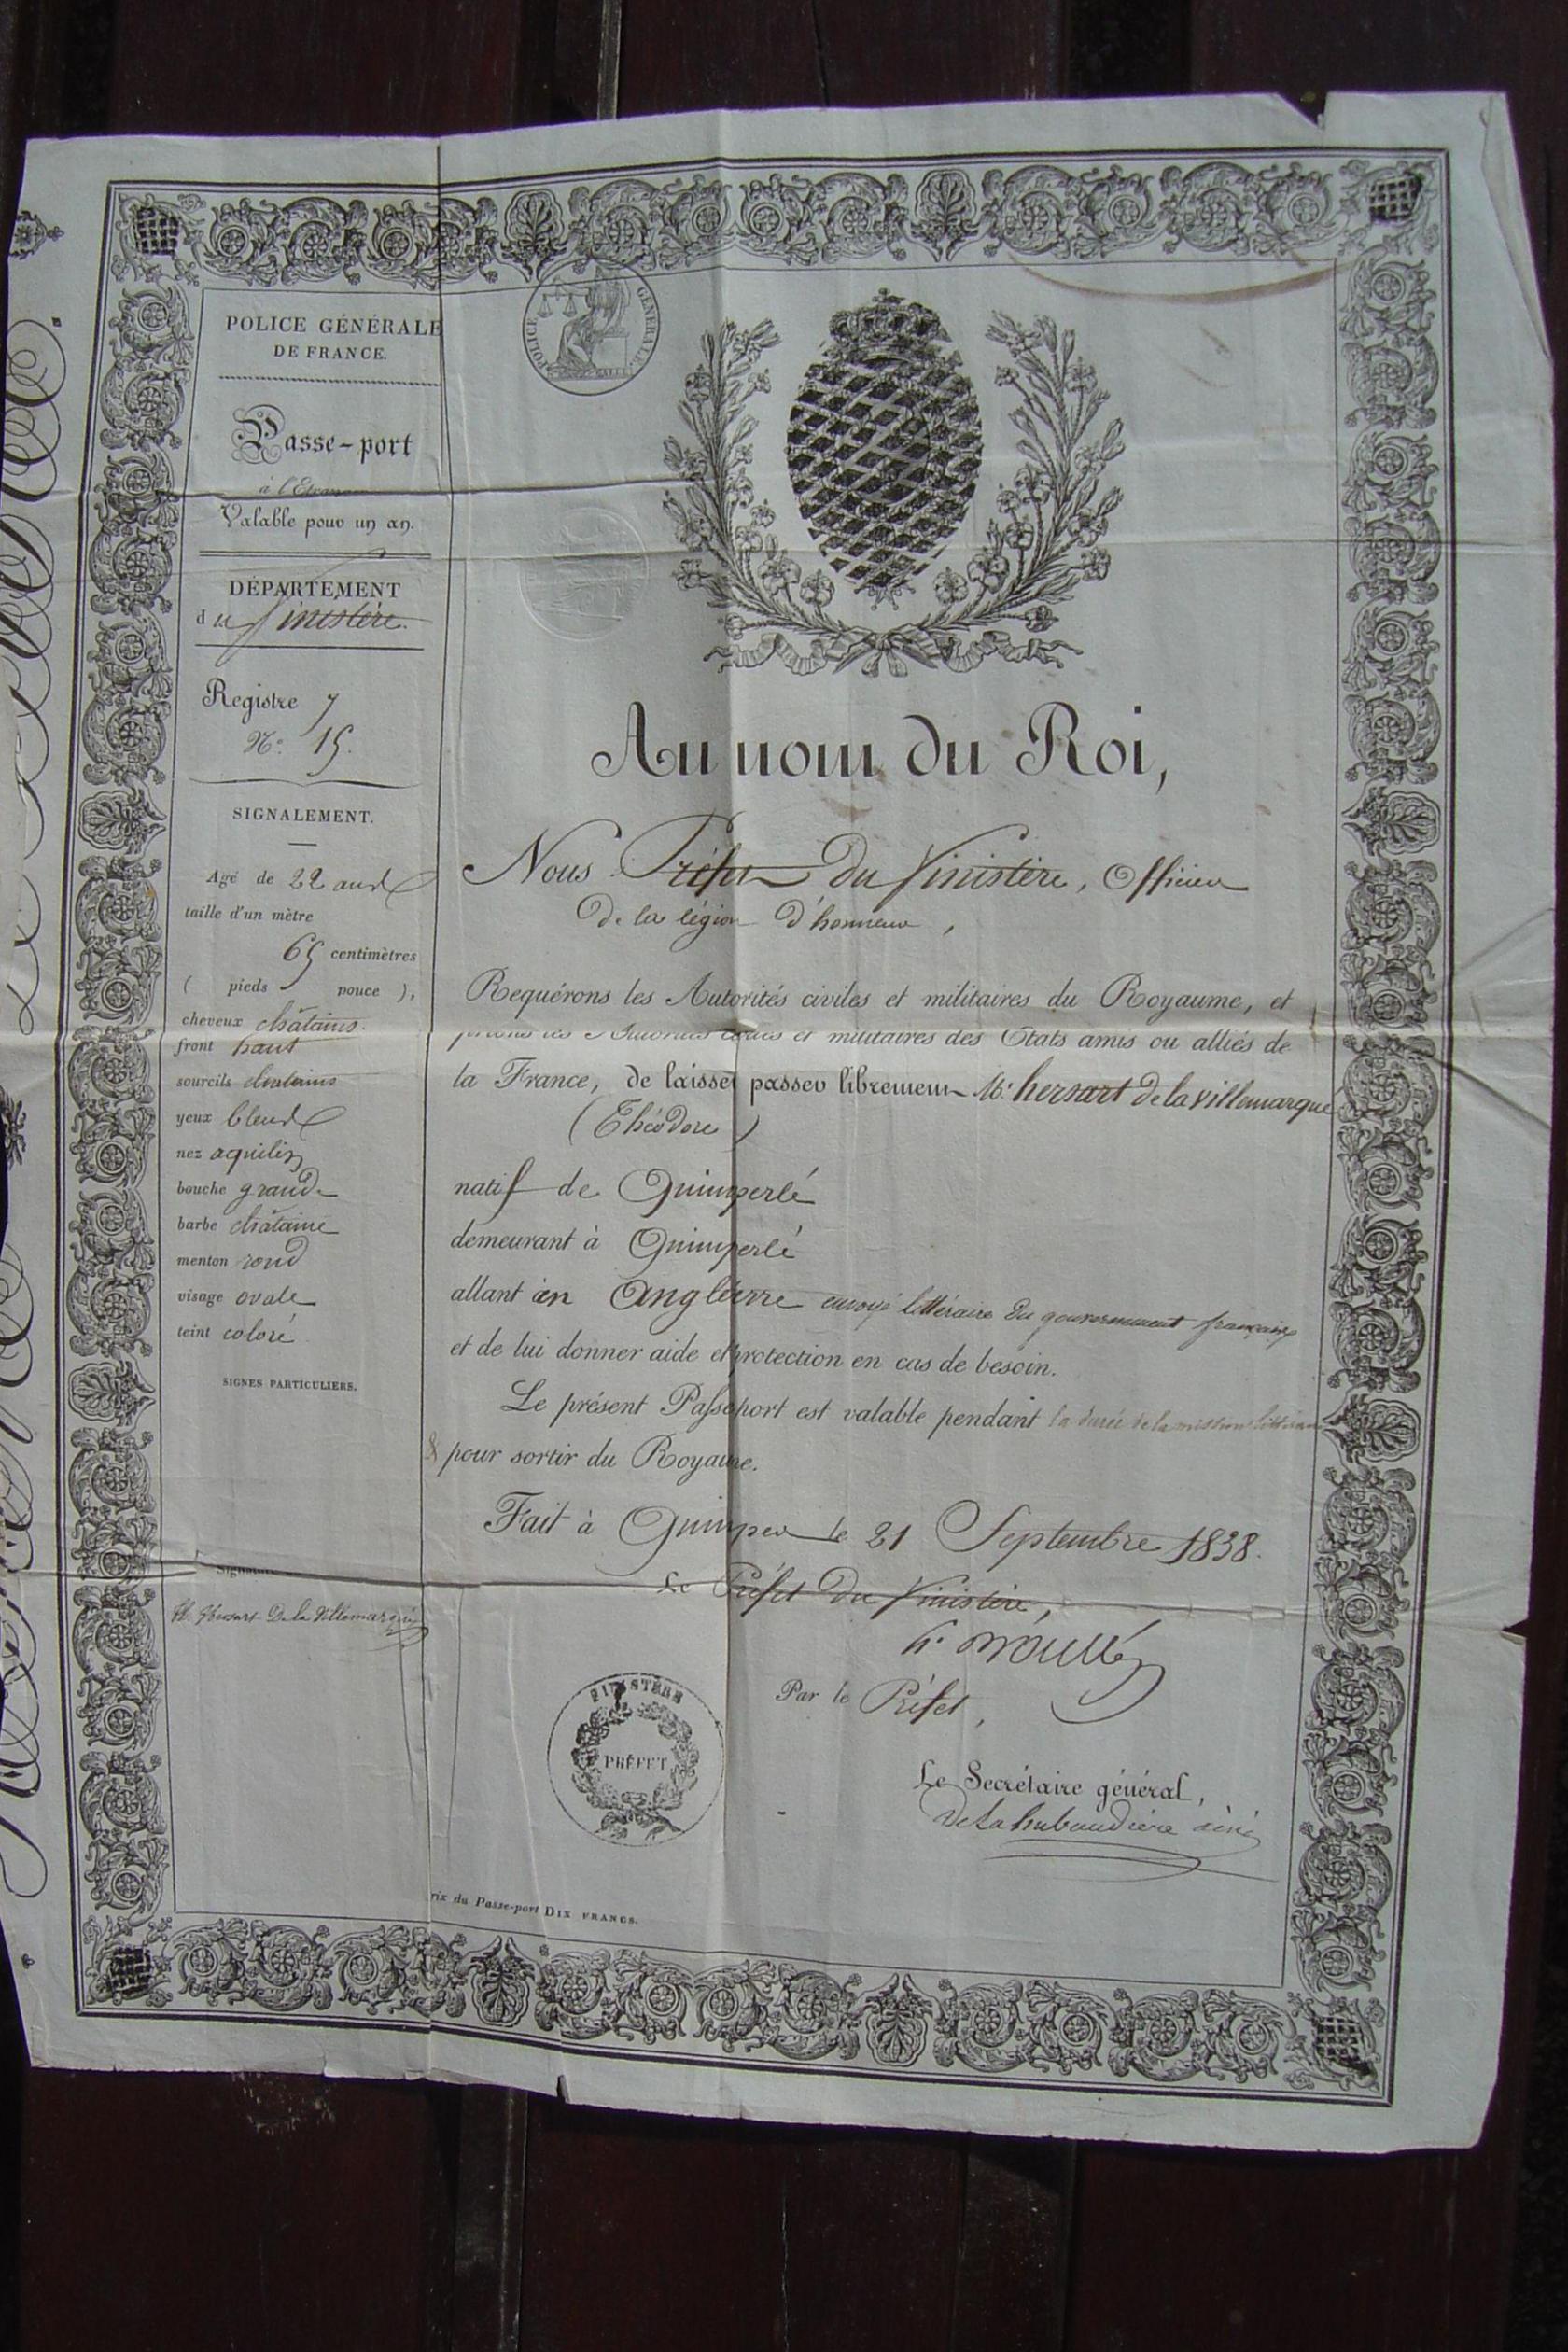 POLICE GÉNÉRALE
DE FRANCE.
Passe-port
à l'Etranger
Valable pour un an.
DÉPARTEMENT
du finistère.
Registre 7
N.º 15.
SIGNALEMENT.
Agé de 22 ans
taille d'un mètre
65 centimètres
( pieds pouce ),
cheveux châtains.
front haut
sourcils châtains
yeux bleus
nez aquilin
bouche grande
barbe châtaine
menton rond
visage ovale
teint coloré
SIGNES PARTICULIERS.
Signature
th hersart De la Villemarqué
POLICE GÉNÉRALE.
Au nom du Roi,
Nous Préfet du finistère, officier
De la légion d'honneur,
Requérons les Autorités civiles et militaires du Royaume, et
prions les Autorités civiles et militaires des Etats amis ou alliés de
la France, de laisser passer librement Mr. hersart De la villemarqué
(Théodore)
natif de Quimperlé
demeurant à Quimperlé
allant en Angleterre envoyé littéraire du gouvernement français
et de lui donner aide et protection en cas de besoin.
Le présent Passeport est valable pendant la durée de la mission littéraire
& pour sortir du Royaume.
Fait à Quimper le 21 Septembre 1838.
Le Préfet Du finistère,
Par le Préfet,
Le Secrétaire général,
De La hubaudière ainé
FINISTÈRE
PRÉFET
rix du Passe-port DIX FRANCS.